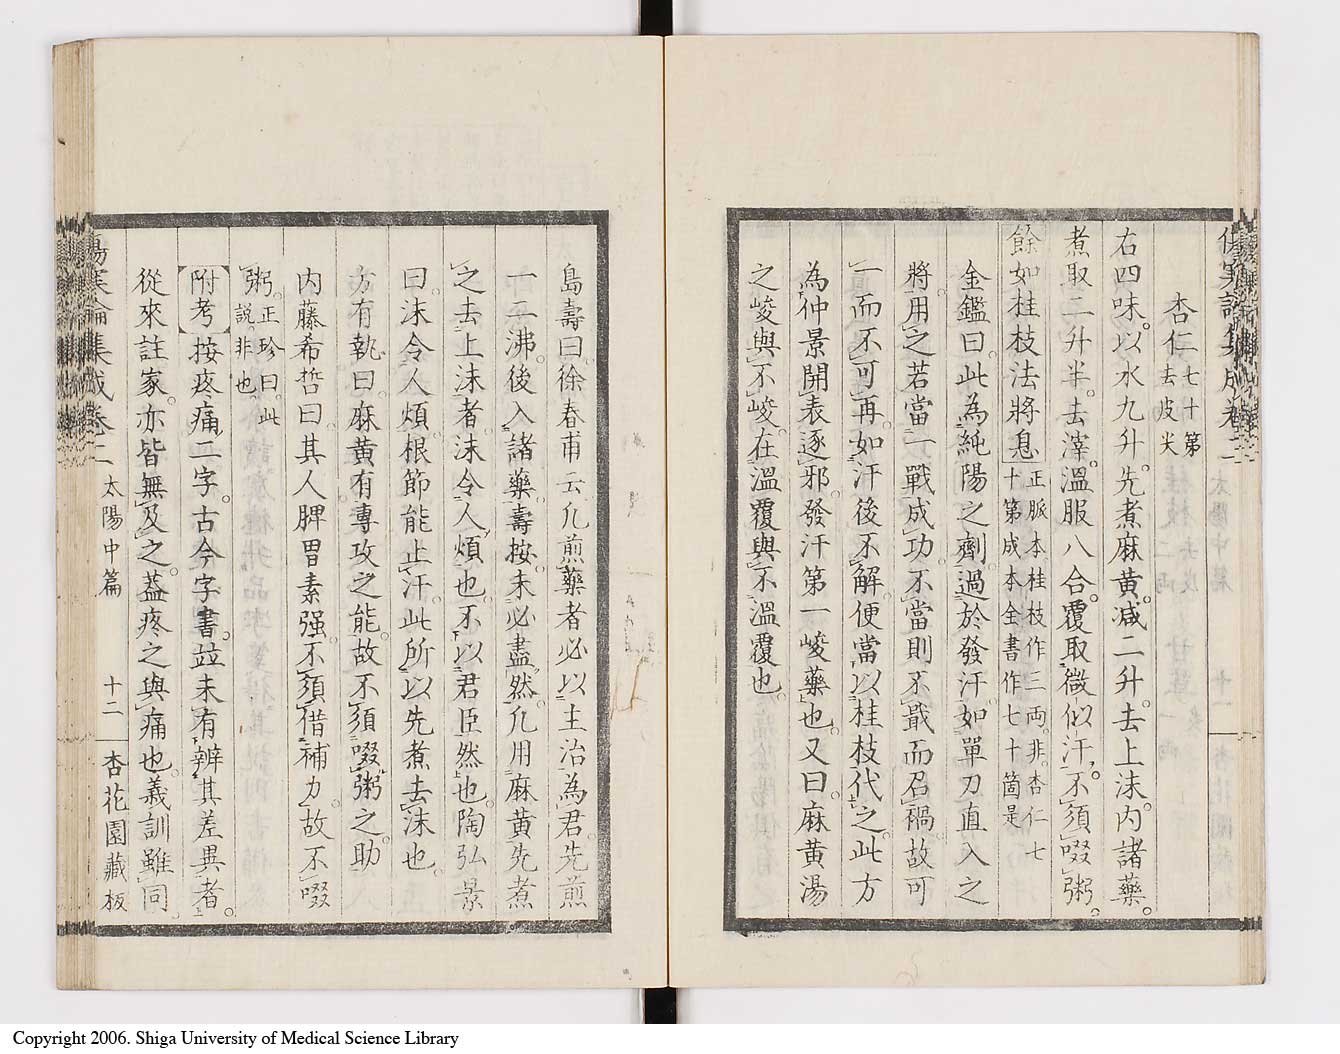 杏仁七十第去皮尖
右四味。以水九升。先煮麻黃。減二升。去上沫。內諸藥。
煮取二升半。去滓。溫服八合。覆取微似汗。不須啜粥。
餘如桂枝法將息正脈本桂枝作三兩。非。杏仁七十第成本全書作七十箇是
金鑑曰。此為純陽之劑過於發汗。如單刀直入之
將。用之若當一戰成功。不當則不戢而召禍。故可
一而不可再。如汗後不解。便當以桂枝代之。此方
為仲景開表逐邪。發汗第一峻藥也。又曰。麻黃湯
之峻與不峻。在溫覆與不溫覆也。
島壽曰。徐春甫云凡煎藥者必以主治為君。先煎
一二沸。後入諸藥。壽按。未必盡然。凡用麻黃先煮
之去上沫者。沫令人煩也。不以君臣然也。陶弘景
曰。沫令人煩。根節能止汗。此所以先煮去沫也。
方有執曰。麻黃有專攻之能。故不須啜粥之助。
內藤希哲曰。其人脾胃素强。不須借補力。故不啜
粥。正珍曰。此說非也
附考按疼痛二字。古今字書。竝未有辨其差異者。
從來註家。亦皆無及之。葢疼之與痛也。義訓雖同
傷寒論集成卷二 太陽中篇 十二 杏花園藏板
Copyright 2006. Shiga University of Medical Science Library